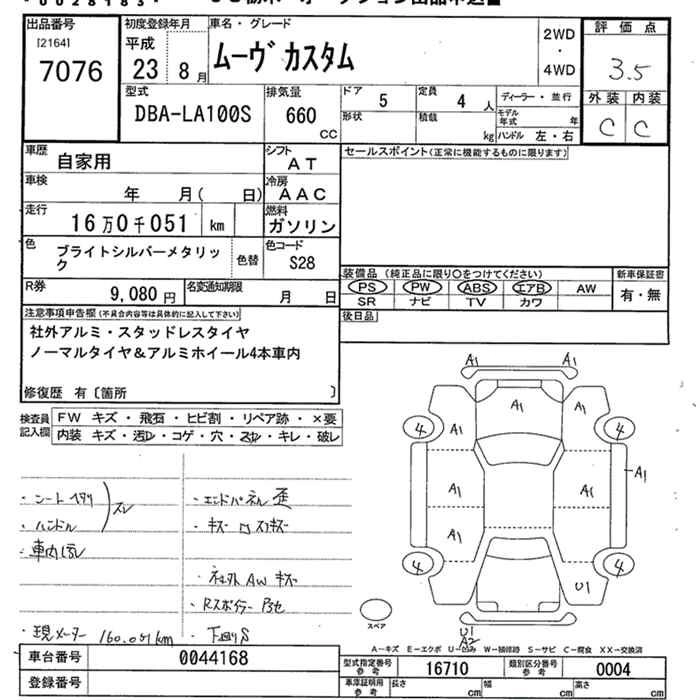 出品番号
[2164]
7076
初度登録年月
平成
23 8月
車名・グレード
ムーヴ カスタム
2WD
・
4WD
評価点
3.5
外装 内装
C C
型式
DBA-LA100S
排気量
660
CC
ドア 5
定員 4人
ディーラー・並行
形状
積載 kg
モデル年式 年
ハンドル 左・右
車歴
自家用
シフト
AT
セールスポイント(正常に機能するものに限ります)
車検
年 月( 日)
冷房
AAC
走行
16万0千051 km
燃料
ガソリン
色
ブライトシルバーメタリック
色替
色コード
S28
装備品 (純正品に限り○をつけてください)
新車保証書
PS PW ABS エアB AW
有・無
SR ナビ TV カワ
R券
9,080円
名変通知期限
月 日
後日品
注意事項申告欄(不具合内容等は具体的に記入して下さい)
社外アルミ・スタッドレスタイヤ
ノーマルタイヤ&アルミホイール4本車内
修復歴 有〔箇所 〕
検査員記入欄
FW キズ・飛石・ヒビ割・リペア跡・×要
内装 キズ・汚レ・コゲ・穴・スレ・キレ・破レ
・シートヘタリ
・ハンドル
スレ
・車内汚レ
・現メーター 160.051km
・エンドパネル歪
・社外AWキズ
・下廻りS
A1 A1
A1 A1
4 A1 4
A1 A1 A1
A1
4 4
U1
U1
A2
スペア
A-キズ E-エクボ U-凹み W-補修跡 S-サビ C-腐食 XX-交換済
車台番号
0044168
登録番号
型式指定番号
参考
16710
類別区分番号
参考
0004
車庫証明用
参考
長さ cm
幅 cm
高さ cm